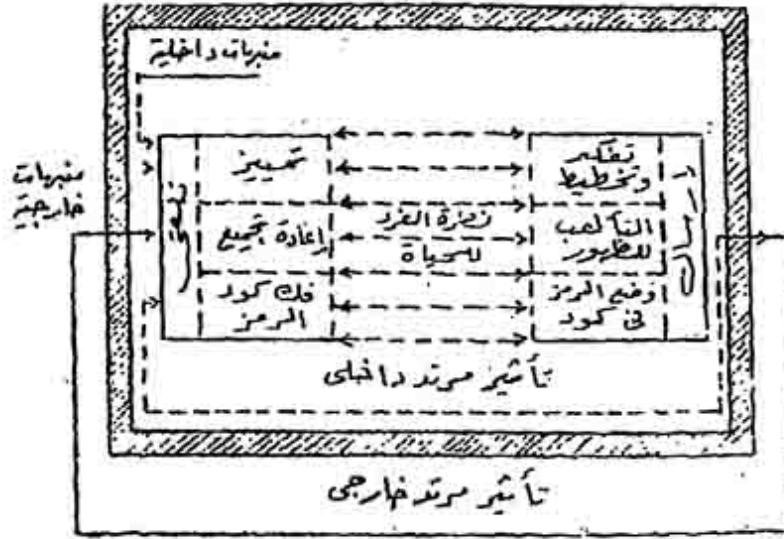 منبهات داخلية
منبهات
خارجية
تلقى
تمييز
إعادة تجميع
فك كود
الرمز
نظرة الفرد
للحياة
تفكير
وتخطيط
التأهب
للظهور
وضع الرمز
فى كود
ارسال
تأثير مرتد داخلى
تأثير مرتد خارجى